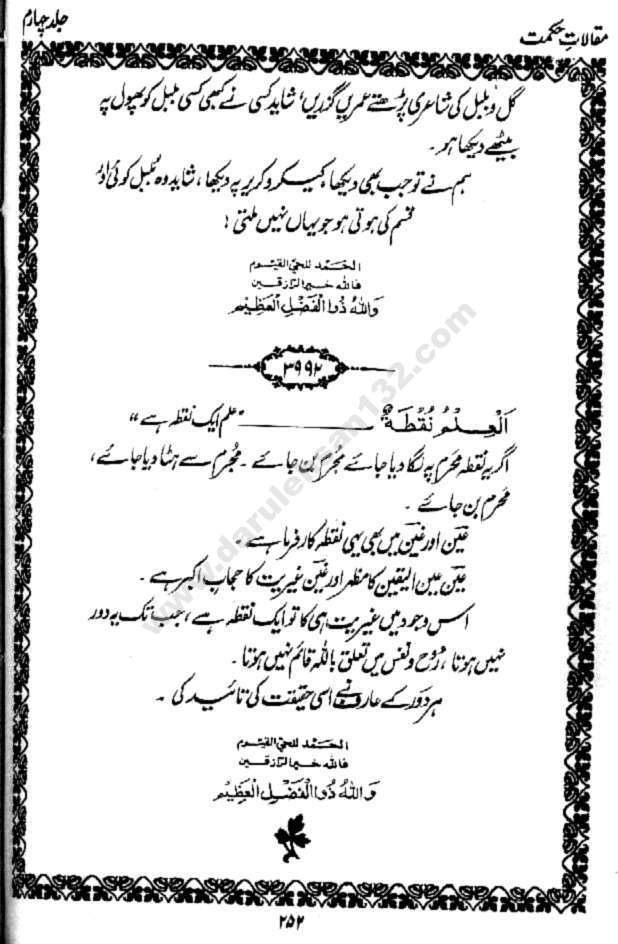 مقالاتِ حکمت
جلد چہارم
گل و بلبل کی شاعری پڑھتے عمریں گزریں، شاید کسی نے کبھی کسی بلبل کو پھول پہ
بیٹھے دیکھا ہو۔
ہم نے تو جب بھی دیکھا، کیکر و کریر پہ دیکھا، شاید وہ بلبل کوئی اور
قسم کی ہوتی ہو جو یہاں نہیں ملتی!
الحمد للحی القیوم
فاللہ خیر الرازقین
وَاللہُ ذُو الْفَضْلِ الْعَظِیْم
۳۹۹۲
اَلْعِلْمُ نُقْطَةٌ ——— "علم ایک نقطہ ہے"
اگر یہ نقطہ محرم پہ لگا دیا جائے مجرم بن جائے۔ مجرم سے ہٹا دیا جائے،
محرم بن جائے۔
عین اور غین میں بھی یہی نقطہ کارفرما ہے۔
عین عین الیقین کا مظہر اور غین غیریت کا حجابِ اکبر ہے۔
اس وجود میں غیریت ہی کا تو ایک نقطہ ہے، جب تک یہ دور
نہیں ہوتا، روح و نفس میں تعلق باللہ قائم نہیں ہوتا۔
ہر دور کے عارف نے اسی حقیقت کی تائید کی۔
الحمد للحی القیوم
فاللہ خیر الرازقین
وَاللہُ ذُو الْفَضْلِ الْعَظِیْم
۲۵۲
www.darulehsan132.com